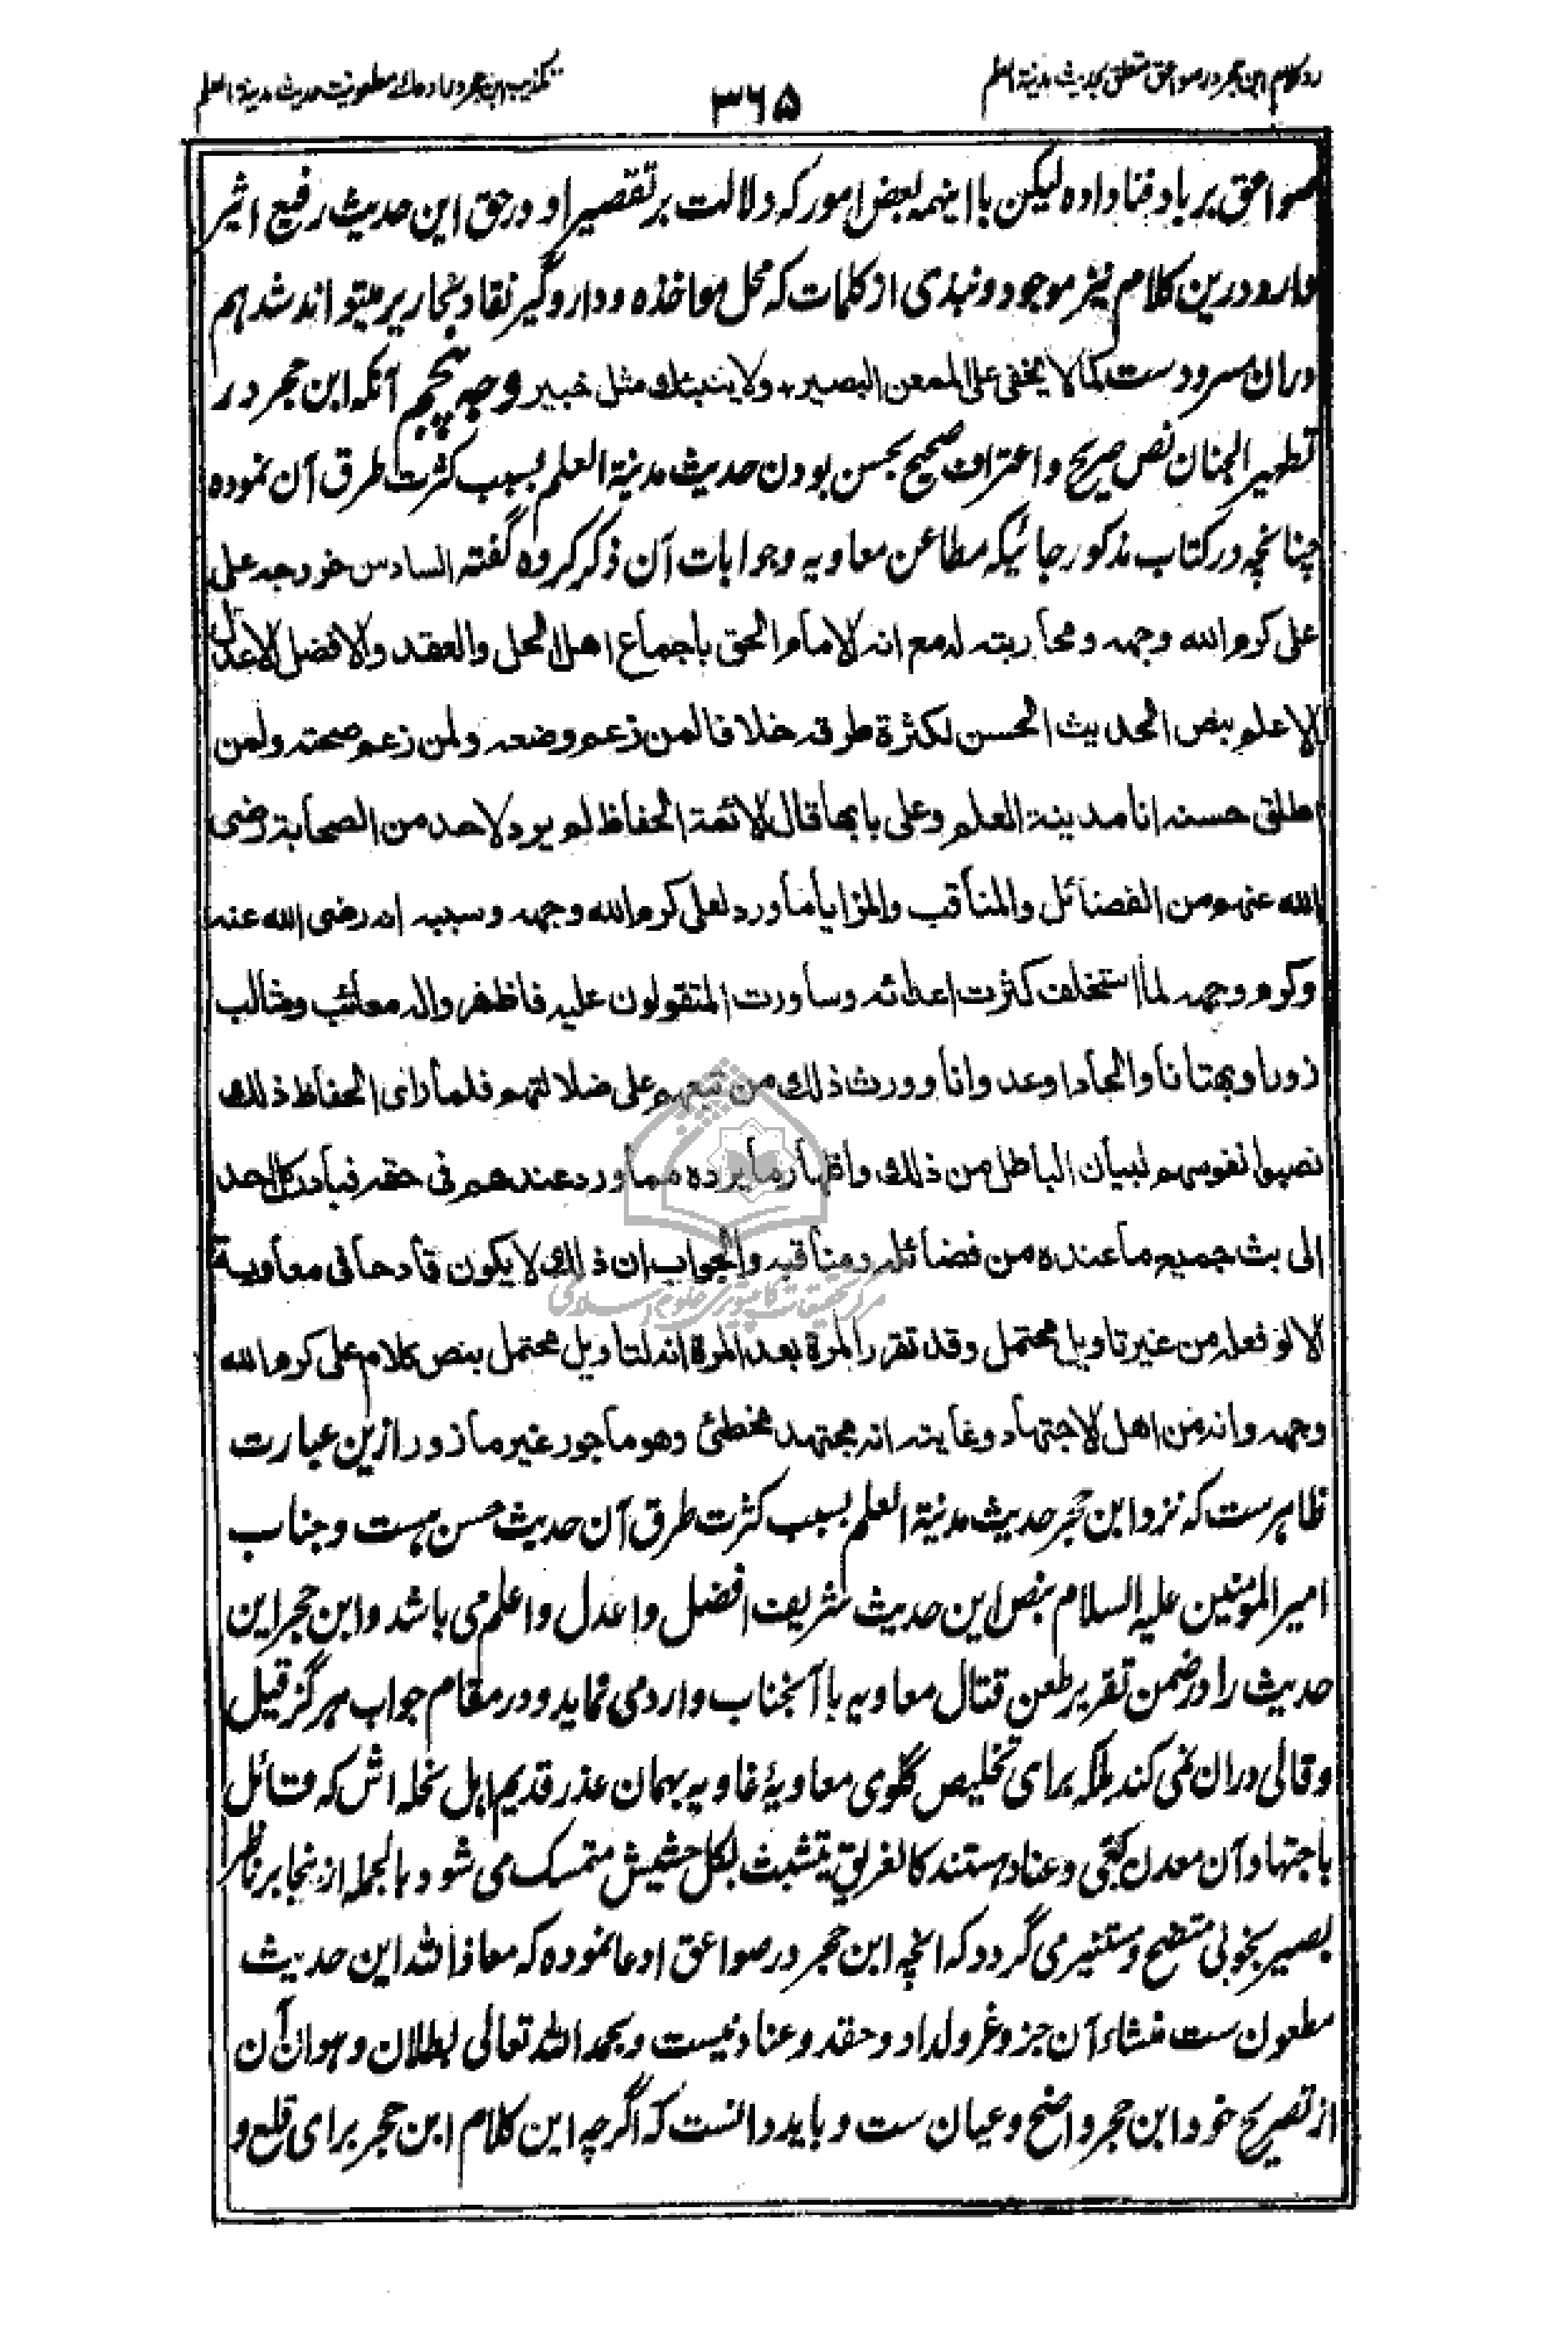 رد کلام ابن حجر در صواعق متعلق بحدیث مدینة العلم
۳۶۵
تکذیب ابن حجر در ادعای مطعونیت حدیث مدینة العلم
صواعق بر باد فنا داده لیکن با اینهمه بعض امور که دلالت بر تقصیر او در حق این حدیث رفیع اثیر
دارد درین کلام نیز موجود و نبذی از کلمات که محل مواخذه و دار و گیر نقاد نحاریر میتواند شد هم
دران مسرودست کما لا یخفی علی الممعن البصیر، ولا ینبئك مثل خبیر وجه پنجم آنکه ابن حجر در
تطهیر الجنان نص صریح و اعتراف صحیح بحسن بودن حدیث مدینة العلم بسبب کثرت طرق آن نموده
چنانچه در کتاب مذکور جائیکه مطاعن معاویه و جوابات آن ذکر کرده گفته السادس خروجه علی
علی کرم الله وجهه ومحاربته له مع انه الامام الحق باجماع اهل الحل والعقد والافضل الاعدل
الاعلم بنص الحدیث الحسن لکثرة طرقه خلافا لمن زعم وضعه ولمن زعم صحته ولمن
اطلق حسنه انا مدینة العلم وعلی بابها قال الائمة الحفاظ لم یرد لاحد من الصحابة رضی
الله عنهم من الفضائل والمناقب والمزایا ما ورد لعلی کرم الله وجهه وسببه انه رضی الله عنه
وکرم وجهه لما استخلف کثرت اعدائه وساورت المتقولون علیه فاظهروا له معائب ومثالب
زورا وبهتانا والحادا وعدوانا وورث ذلك من تبعهم علی ضلالتهم فلما رای الحفاظ ذلك
نصبوا نفوسهم لبیان الباطل من ذلك واظهار ما یرده مما ورد عندهم فی حقه فبادر کل احد
الی بث جمیع ما عنده من فضائله ومناقبه والجواب ان ذلك لا یکون قادحا فی معاویة
الا لو فعله من غیر تاویل محتمل وقد تقرر المرة بعد المرة انه لتاویل محتمل بنص کلام علی کرم الله
وجهه وانه من اهل الاجتهاد وغایته انه مجتهد مخطئ وهو ماجور غیر مازور ازین عبارت
ظاهرست که نزد ابن حجر حدیث مدینة العلم بسبب کثرت طرق آن حدیث حسن هست و جناب
امیر المومنین علیه السلام بنص این حدیث شریف افضل و اعدل و اعلم می باشد و ابن حجر این
حدیث را در ضمن تقریر طعن قتال معاویه با آنجناب وارد می نماید و در مقام جواب هرگز قیل
و قالی دران نمی کند بلکه برای تخلیص گلوی معاویهٔ غاویه بهمان عذر قدیم اهل نحله اش که قائل
باجتهاد آن معدن بغی و عناد هستند کالغریق یتشبث بکل حشیش متمسک می شود بالجمله ازینجا بر ناظر
بصیر بخوبی متضح و مستنیر می گردد که انچه ابن حجر در صواعق ادعا نموده که معاذ الله این حدیث
مطعون ست منشاء آن جز وغر و لداد و حقد و عناد نیست و بحمد الله تعالی بطلان و هوان آن
از تصریح خود ابن حجر واضح و عیان ست و باید دانست که اگرچه این کلام ابن حجر برای قلع و
مرکز تحقیقات کامپیوتری علوم اسلامی